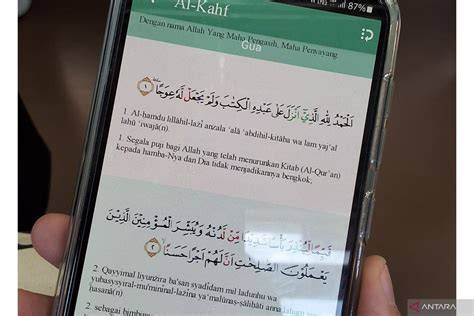 87%
Al-Kahf
Dengan nama Allah Yang Maha Pengasih, Maha Penyayang
Gua
اَلْحَمْدُ لِلّٰهِ الَّذِيْٓ اَنْزَلَ عَلٰى عَبْدِهِ الْكِتٰبَ وَلَمْ يَجْعَلْ لَّهٗ عِوَجًا ۜ ١
1. Al-ḥamdu lillāhil-lażī anzala ‘alā ‘abdihil-kitāba wa lam yaj‘al
lahū ‘iwajā(n)
1. Segala puji bagi Allah yang telah menurunkan Kitab (Al-Qur'an)
kepada hamba-Nya dan Dia tidak menjadikannya bengkok,
قَيِّمًا لِّيُنْذِرَ بَأْسًا شَدِيْدًا مِّنْ لَّدُنْهُ وَيُبَشِّرَ الْمُؤْمِنِيْنَ الَّذِيْنَ
يَعْمَلُوْنَ الصّٰلِحٰتِ اَنَّ لَهُمْ اَجْرًا حَسَنًا ٢
2. Qayyimal liyunżira ba'san syadīdam mil ladunhu wa
yubasysyiral-mu'minīnal-lażīna ya‘malūnaṣ-ṣāliḥāti anna lahum
ḥasanā(n)
2. sebagai bimbingan
ANTARA